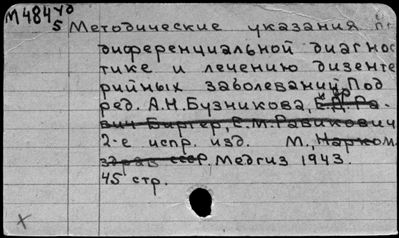 М484уд
5 Методические указания п
диференциальной диагнос
тике и лечению дизенте
рийных заболеваний Под
ред. А.Н. Бузникова,
Е.М. Рабикович
2-е испр. изд. М., Нарком
здрав ссср, Медгиз 1943.
45 стр.